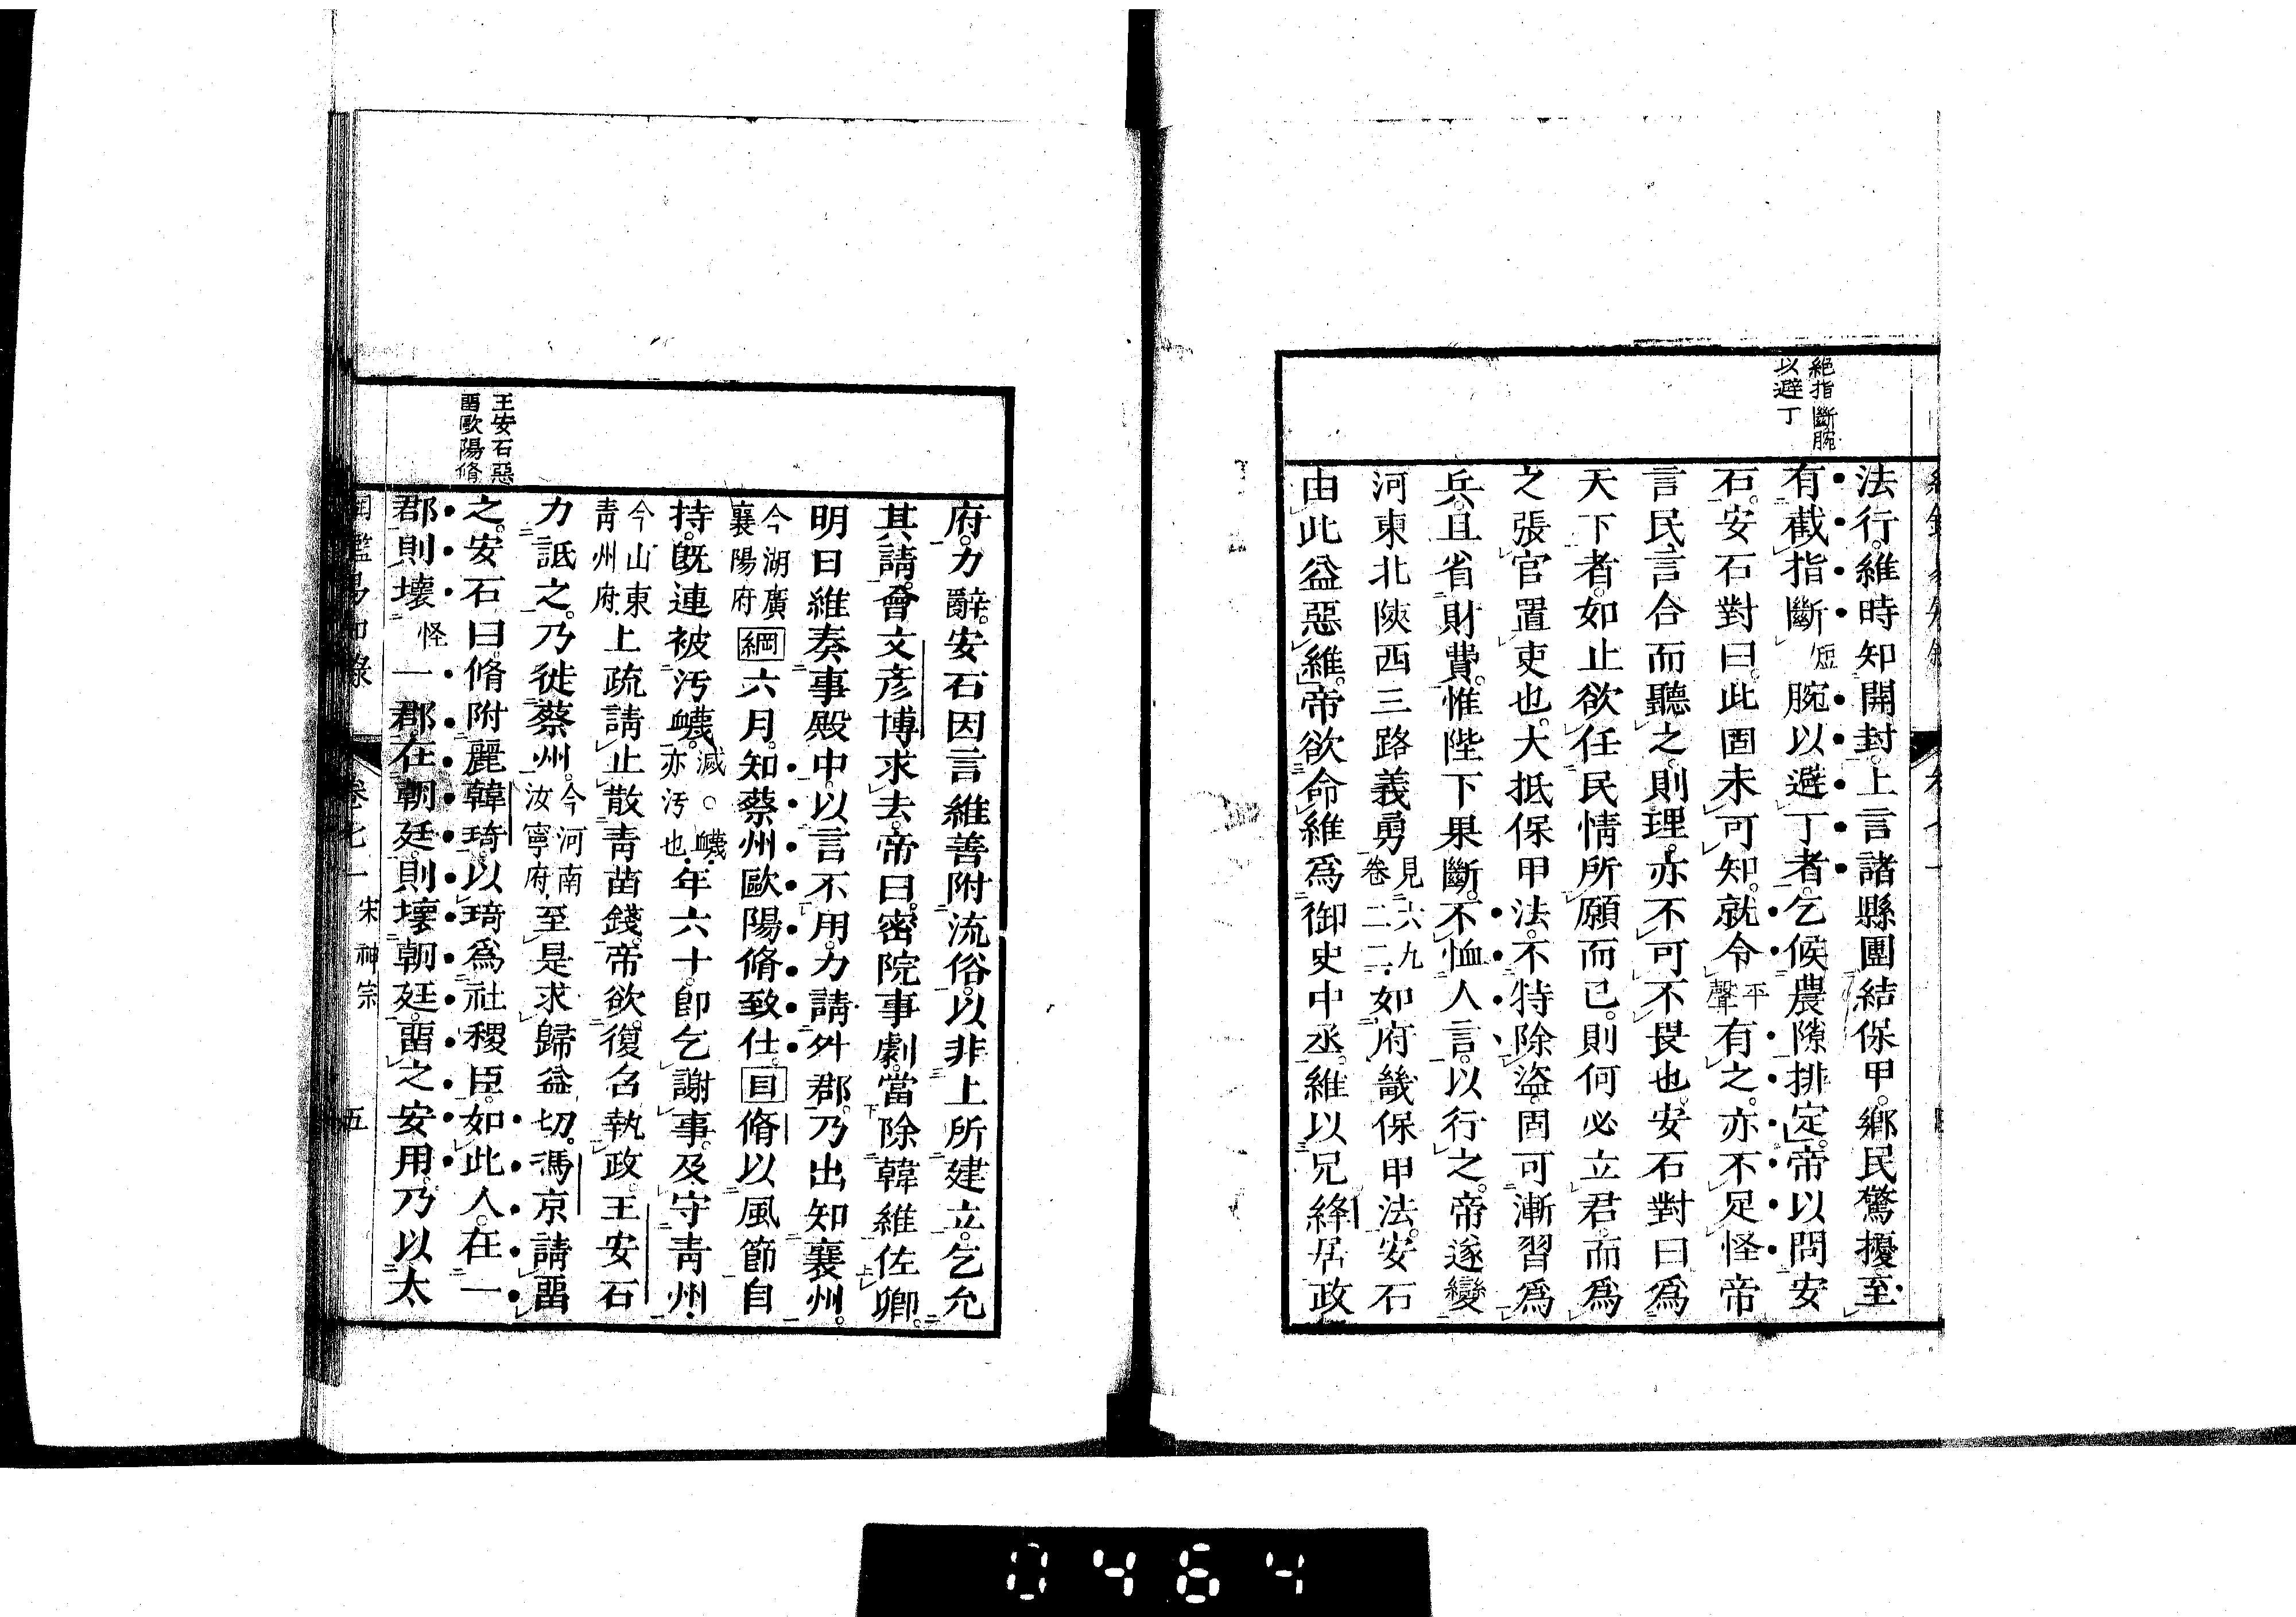 絕指斷腕
以避丁
法行。維時知開封。上言諸縣團結保甲。鄉民驚擾。至
有截指斷短腕以避丁者。乞候農隙排定。帝以問安
石。安石對曰。此固未可知。就令平聲有之。亦不足怪。帝
言民言合而聽之。則理。亦不可不畏也。安石對曰爲
天下者。如止欲任民情所願而已。則何必立君。而爲
之張官置吏也。大抵保甲法。不特除盜。固可漸習爲
兵。且省財費。惟陛下果斷。不恤人言。以行之。帝遂變
河東北陝西三路義勇見六九卷二二。如府畿保甲法。安石
由此益惡維。帝欲命維爲御史中丞。維以兄絳居政
府。力辭。安石因言維善附流俗。以非上所建立。乞允
其請。會文彥博求去。帝曰。密院事劇。當除韓維佐卿。
明日維奏事殿中。以言不用。力請外郡。乃出知襄州。
今湖廣襄陽府綱六月。知蔡州歐陽脩致仕。目脩以風節自
持。旣連被汚衊。滅。○衊亦汚也。年六十。卽乞謝事。及守青州。
今山東青州府上疏請止散青苗錢。帝欲復召執政。王安石
力詆之。乃徙蔡州。今河南汝寧府至是求歸益切。馮京請畱
之。安石曰。脩附麗韓琦。以琦爲社稷臣。如此人。在一
郡則壞怪一郡。在朝廷。則壞朝廷。畱之安用。乃以太
王安石惡
畱歐陽脩
卷七一 宋神宗 五
0464